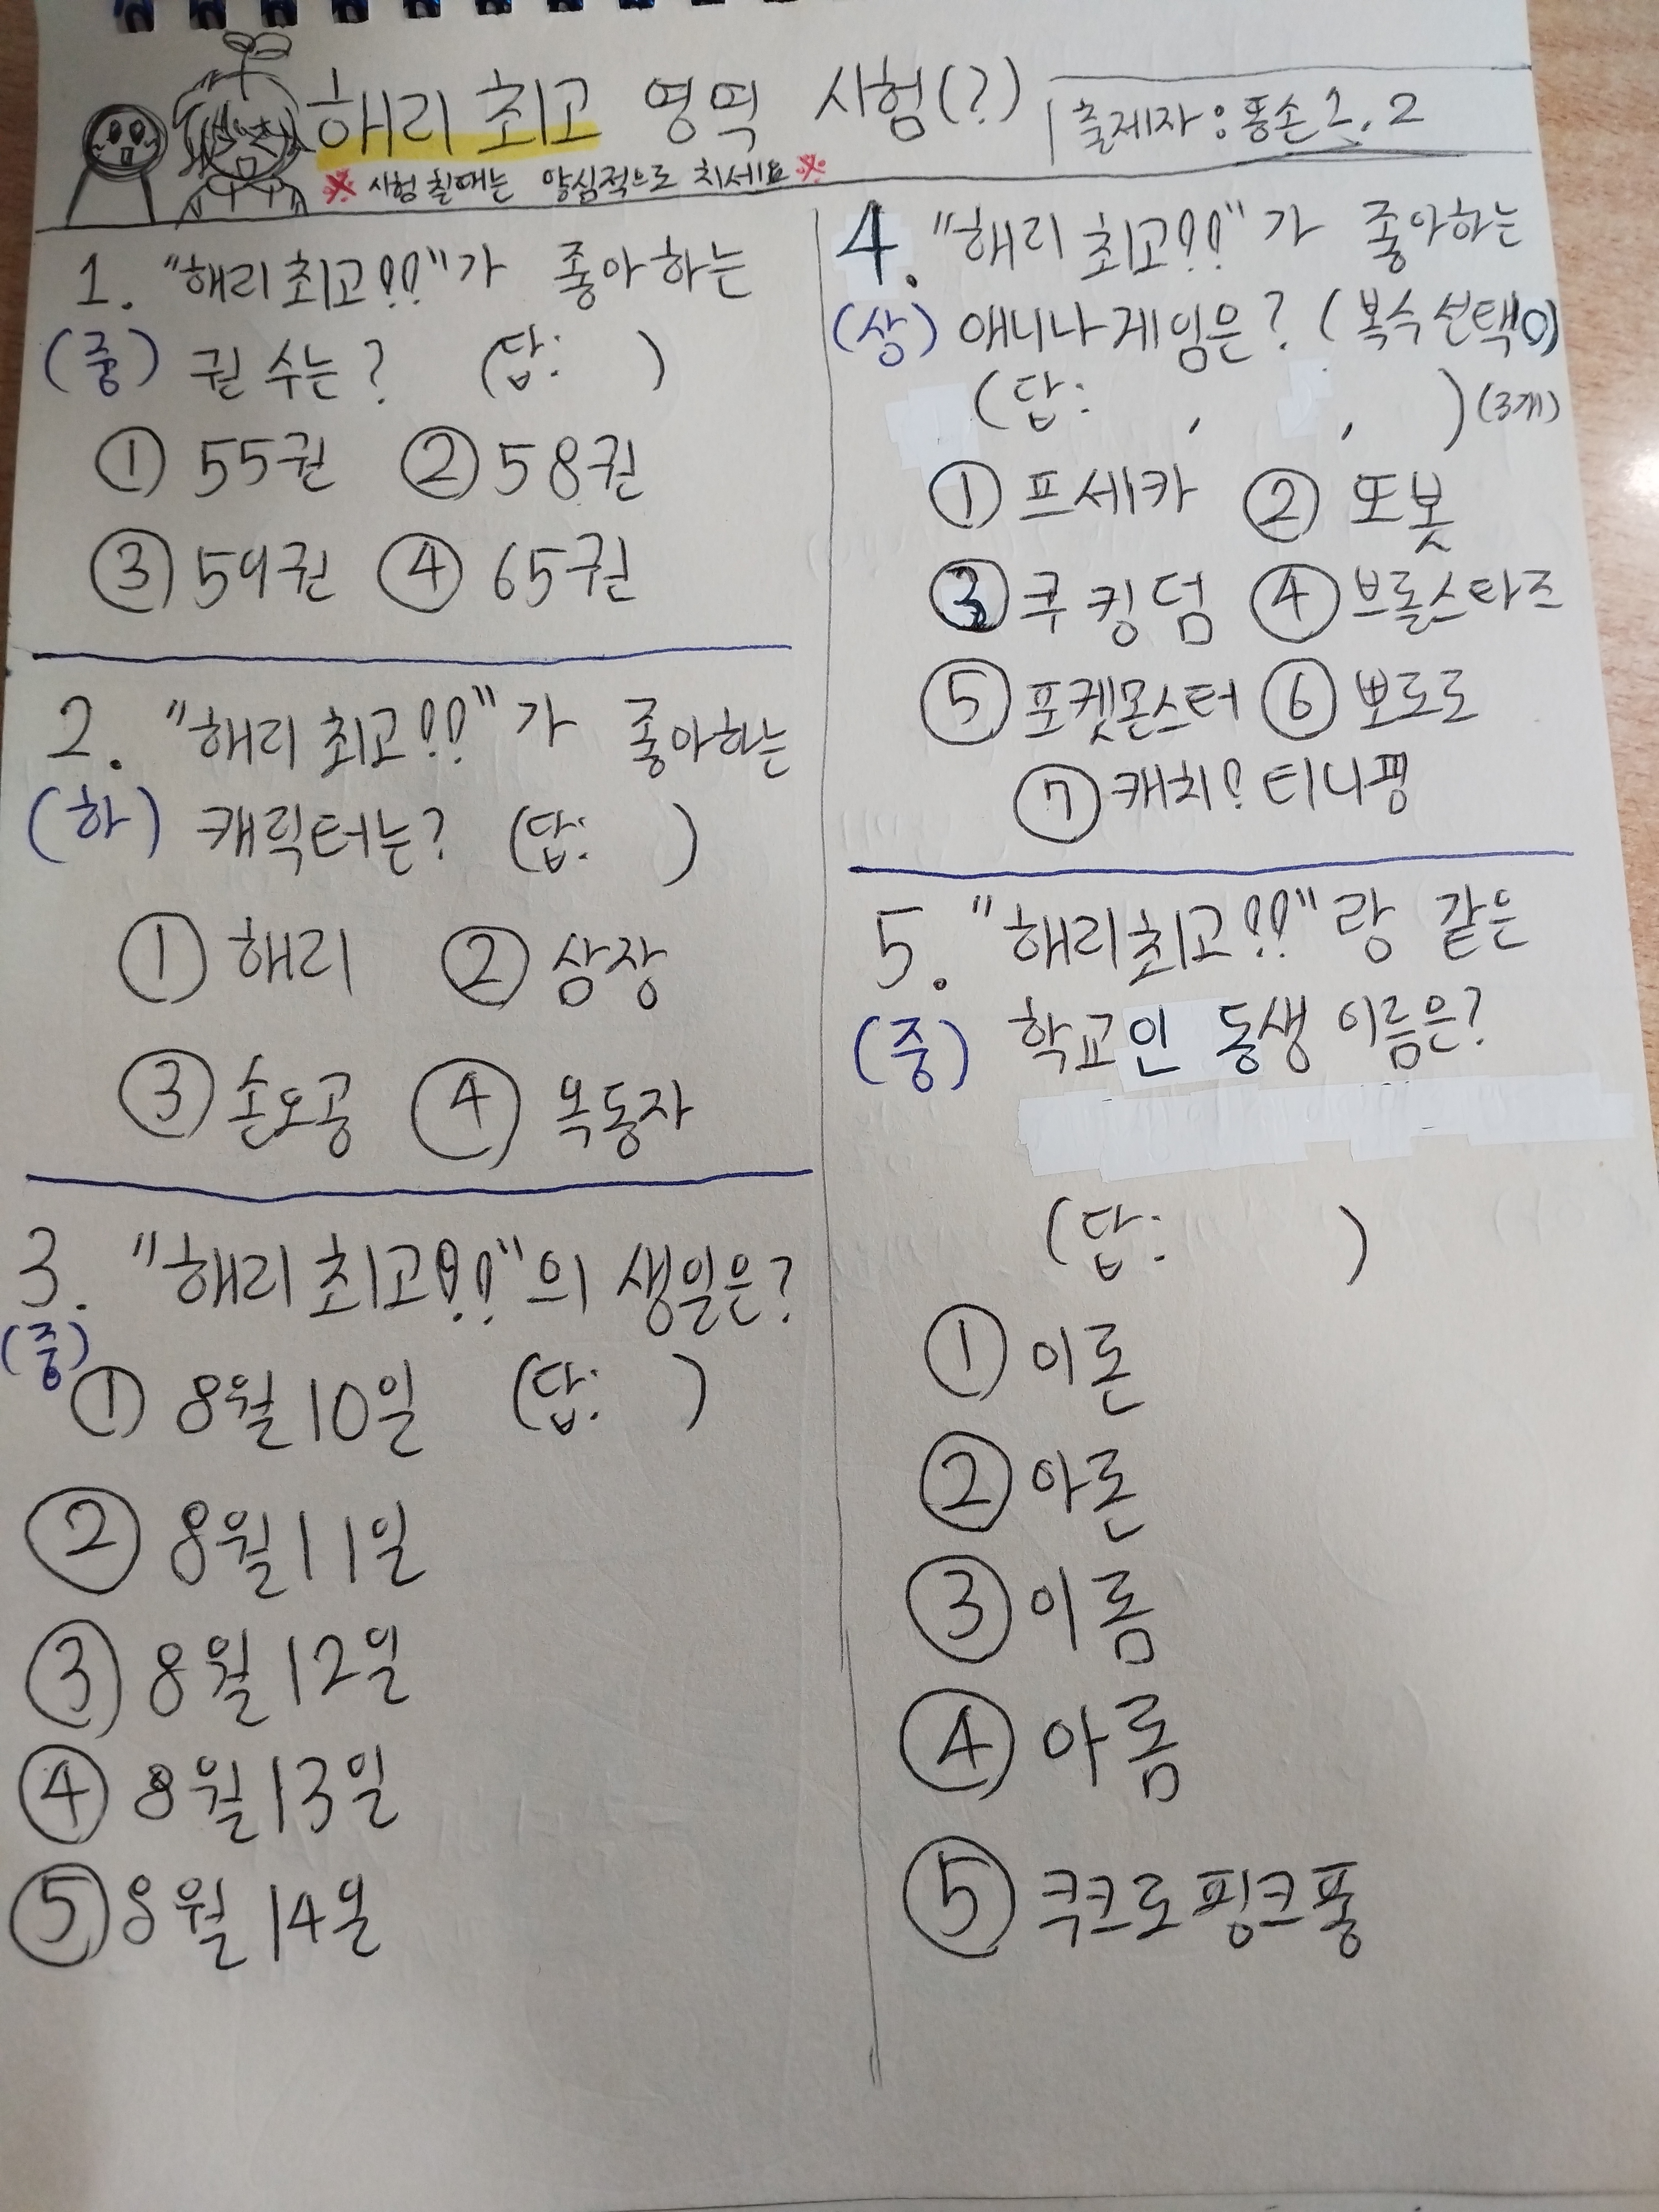 해리 최고 영역 시험(?)
출제자 : 똥손 1, 2
※ 시험 칠때는 양심적으로 치세요 ※
1. "해리 최고!!"가 좋아하는
(중) 권 수는? (답: )
① 55권 ② 58권
③ 59권 ④ 65권
2. "해리 최고!!"가 좋아하는
(하) 캐릭터는? (답: )
① 해리 ② 삼장
③ 손오공 ④ 옥동자
3. "해리 최고!!"의 생일은?
(중)
① 8월 10일 (답: )
② 8월 11일
③ 8월 12일
④ 8월 13일
⑤ 8월 14일
4. "해리 최고!!"가 좋아하는
(상) 애니나 게임은? (복수 선택O)
(답: , , ) (3개)
① 프세카 ② 또봇
③ 쿠킹덤 ④ 브롤스타즈
⑤ 포켓몬스터 ⑥ 뽀로로
⑦ 캐치! 티니핑
5. "해리 최고!!"랑 같은
(중) 학교인 동생 이름은?
(답: )
① 이론
② 아론
③ 이롬
④ 아롬
⑤ 쿡크로핑크퐁